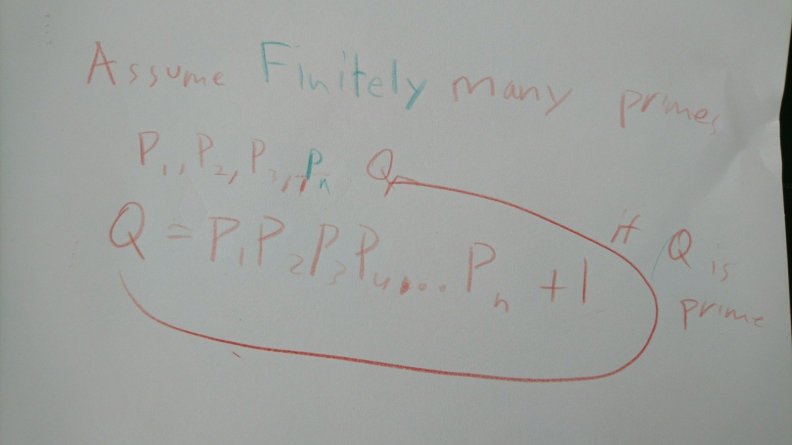 Assume Finitely many primes
P₁, P₂, P₃,, Pₙ Q
Q = P₁P₂P₃P₄,... Pₙ + 1
if Q is
prime